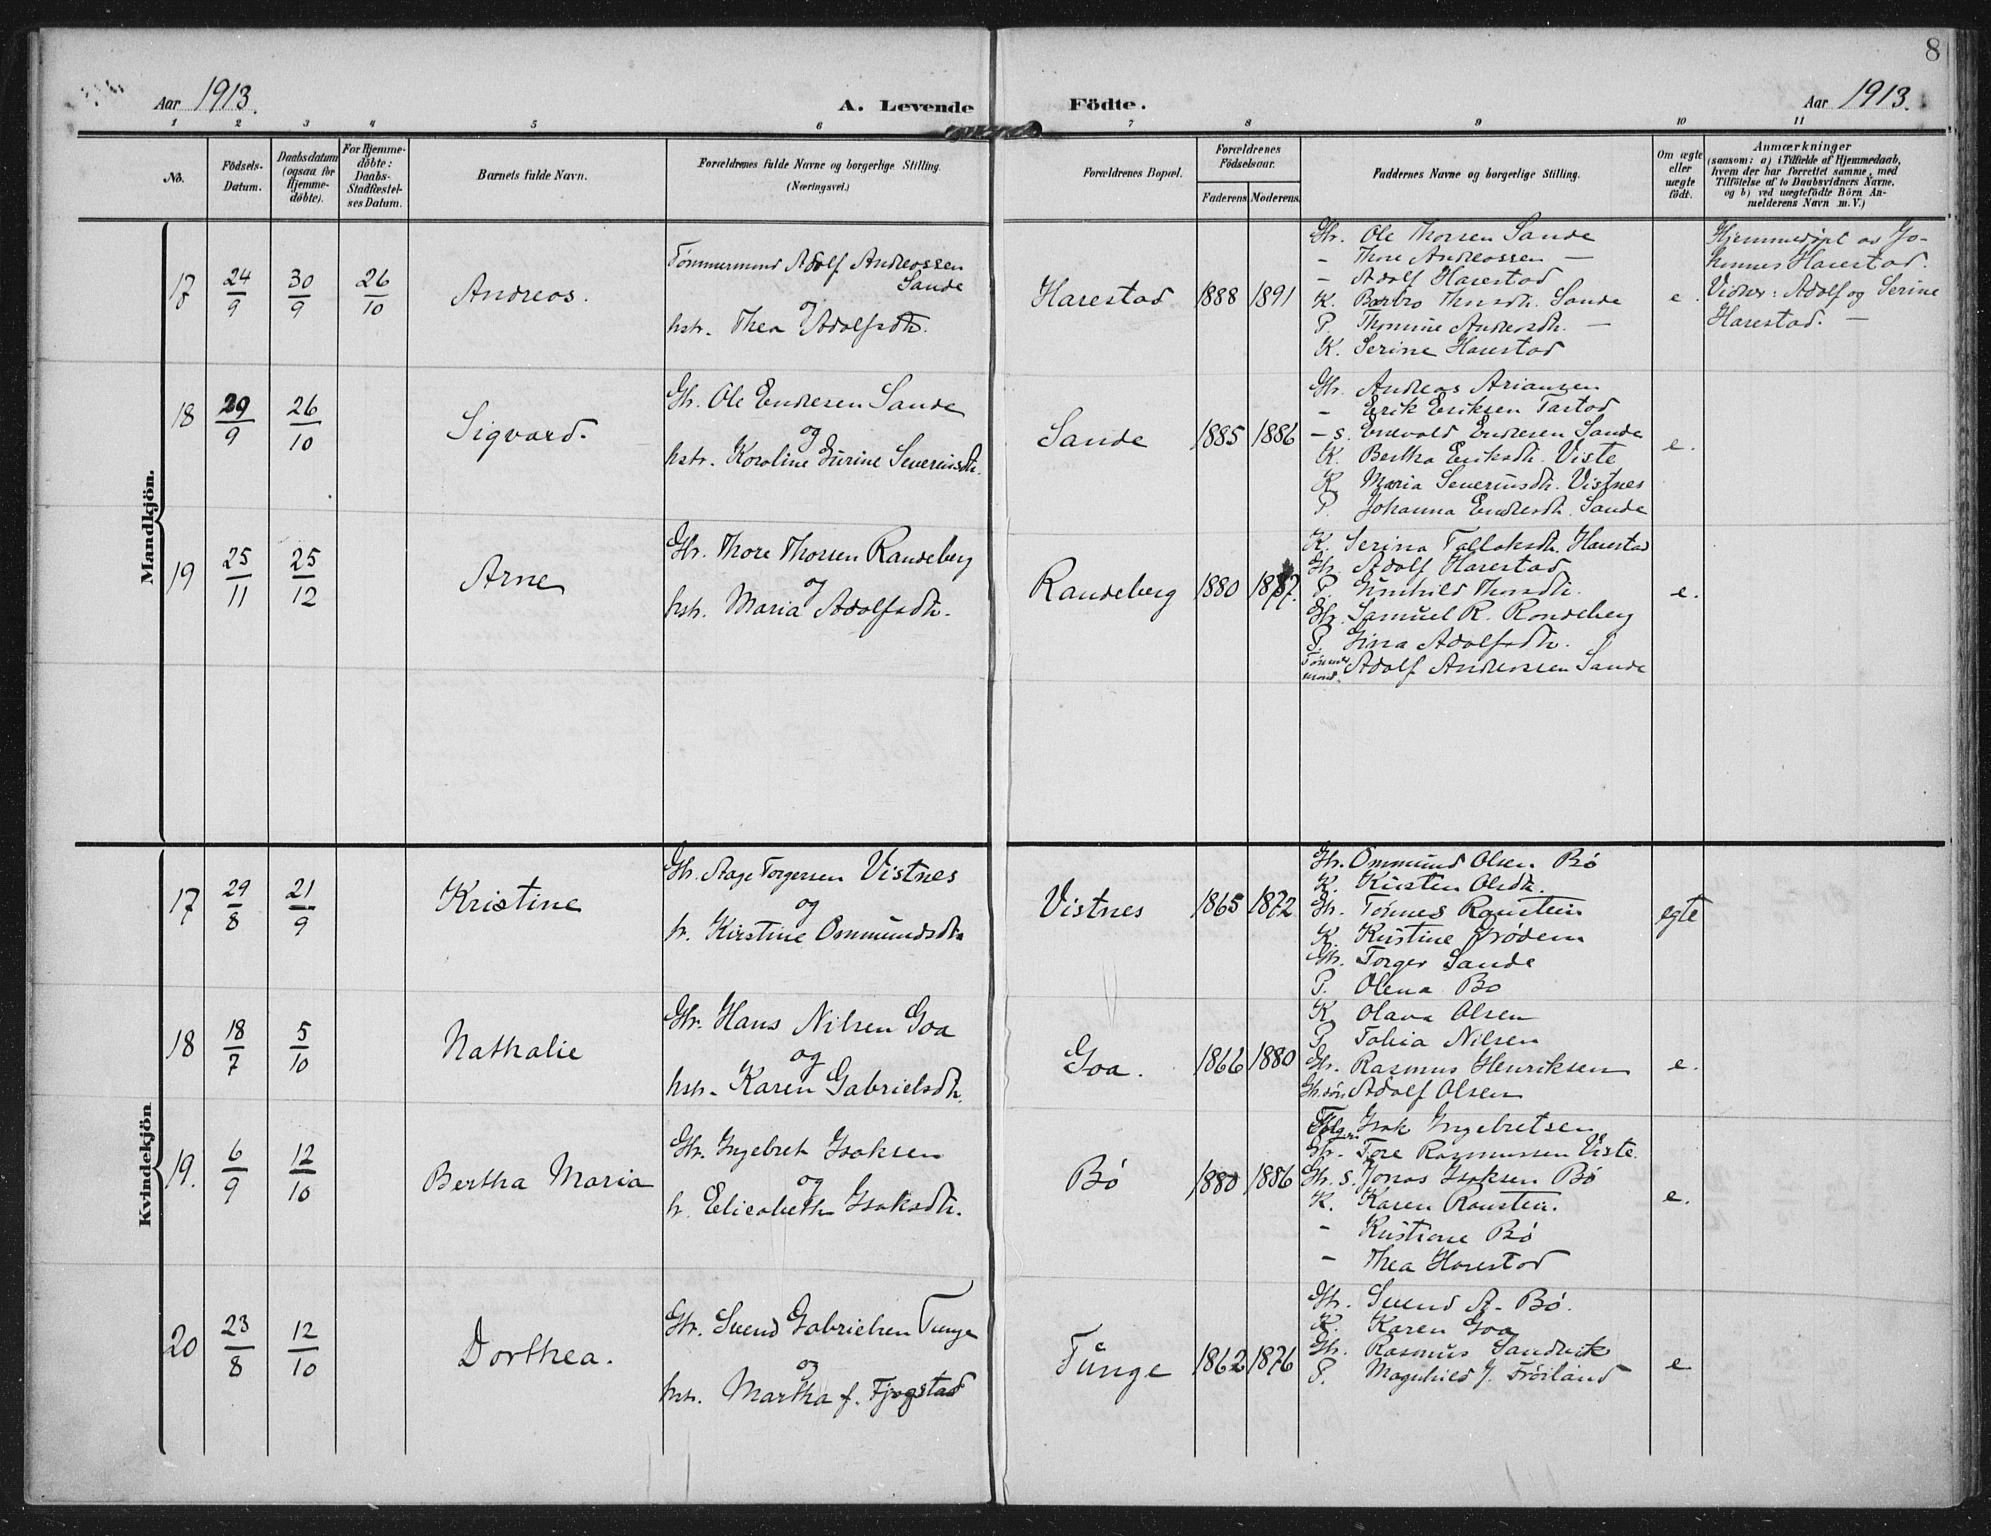 8
Aar 1913.
A. Levende Födte.
Aar 1913.
1 2 3 4 5 6 7 8 9 10 11
No.
Födsels-
Datum.
Daabsdatum
(ogsaa for
Hjemme-
döbte).
For Hjemme-
döbte:
Daabs-
Stadfæstel-
ses Datum.
Barnets fulde Navn.
Forældrenes fulde Navne og borgerlige Stilling.
(Næringsvei.)
Forældrenes Bopæl.
Forældrenes
Födselsaar.
Faderens Moderens
Faddernes Navne og borgerlige Stilling.
Om ægte
eller
uægte
födt.
Anmærkninger
(saasom: a) i Tilfælde af Hjemmedaab,
hvem der har forrettet samme, med
Tilföielse af to Daabsvidners Navne,
og b) ved uægtefödte Börn An-
melderens Navn m. V.)
Mandkjön.
17
24/9
30/9
26/10
Andreas.
Tømmermand Adolf Andreassen
Sande
og
hstr. Thea Adolfsdtr.
Harestad
1888 1891
Gbr. Ole Thorsen Sande
- Thore Andreassen -
- Adolf Harestad
K. Barbro Thorsdtr. Sande
P. Thomine Andersdtr. -
K. Serine Harestad
e.
Hjemmedøpt av Jo-
hannes Harestad.
Vidner: Adolf og Serine
Harestad. -
18
29/9
26/10
Sigvard.
Gbr. Ole Endresen Sande
og
hstr. Karoline Gurine Severinsdtr.
Sande
1885 1886
Gbr. Andreas Ariansen
- Erik Eriksen Tastad
- s. Enevald Endresen Sande
K. Bertha Eriksdtr. Viste
K. Maria Severinsdtr. Vistnes
P. Johanna Endresdtr. Sande
e.
19
25/11
25/12
Arne
Gbr. Thore Thorsen Randeberg
og
hstr. Maria Adolfsdtr.
Randeberg
1880
K. Serina Tollaksdtr. Harestad
Gbr. Adolf Harestad
P. Gunhild Thorsdtr.
Gbr. Samuel R. Randeberg
P. Gina Adolfsdtr.
Tømmer
mand. Adolf Andreassen Sande
e.
Kvindekjön
17
29/8
21/9
Kristine
Gbr. Aage Torgersen Vistnes
og
h. Kirstine Ommundsdtr
Vistnes
1865 1872
Gbr. Ommund Olsen Bø
K. Kirsten Olsdtr.
Gbr. Tønnes Raustein
K. Kristine Grødem
Gbr. Torger Sande
P. Olena Bø
egte
18
18/7
5/10
Nathalie
Gbr. Hans Nilsen Goa
og
hstr. Karen Gabrielsdtr.
Goa.
1866 1880
K. Olava Olsen
P. Tobia Nilsen
Gbr. Rasmus Henriksen
Gbr.søn Adolf Olsen
e.
19.
6/9
12/10
Bertha Maria
Gbr. Ingebret Isaksen
og
h. Elisabeth Isaksdtr.
Bø
1880 1886
Isak Ingebretsen
Gbr. Tore Rasmussen Viste.
Gbr. s. Jonas Isaksen Bø
K. Karen Raustein.
- Kristiane Bø
- Thea Harestad
e.
20
23/8
12/10
Dorthea.
Gbr. Svend Gabrielsen Tunge
og
hstr. Martha f. Fjogstad
Tunge
1862 1876
Gbr. Svend A. Bø.
K. Karen Goa
Gbr. Rasmus Sandvik
P. Magnhild J. Frøiland
e